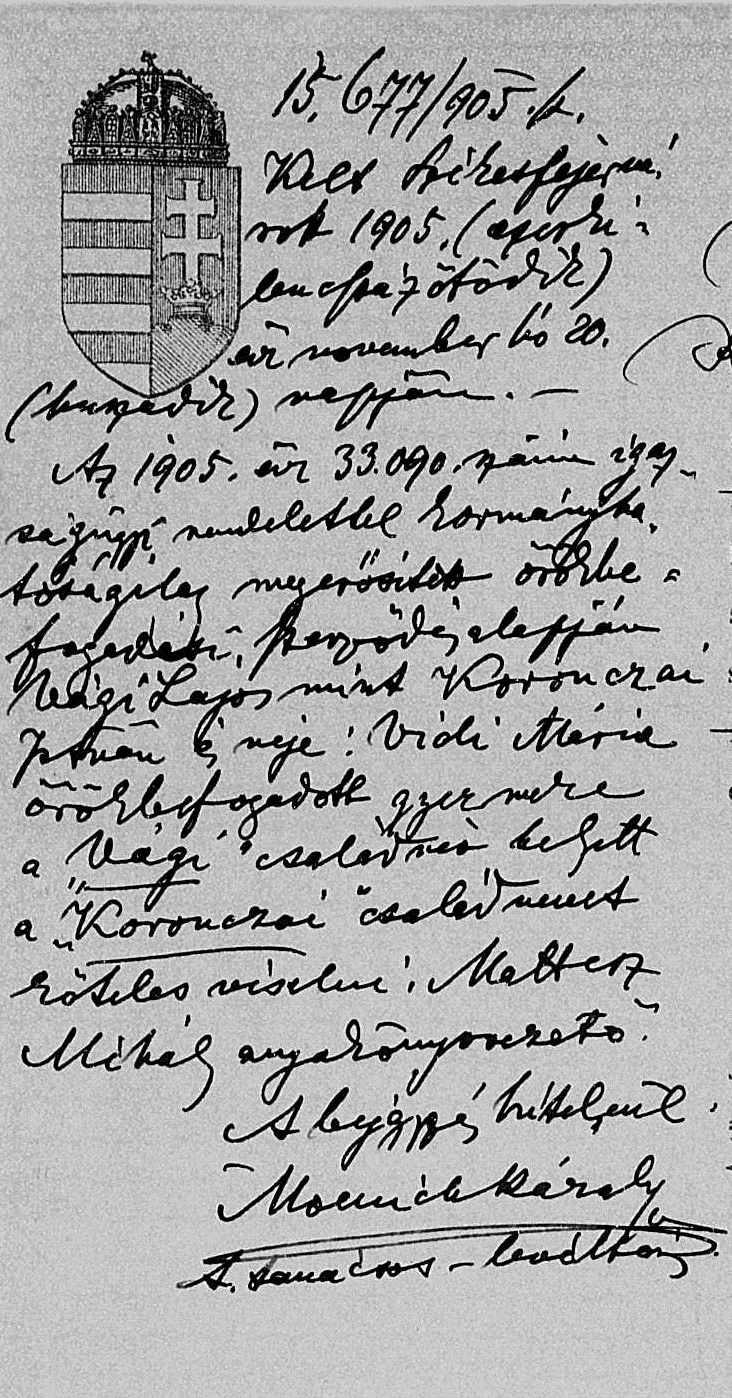 15.677/905.k.
Kelt Székesfejérvá-
rott 1905. (ezerki-
lenczszázötödik)
évi november hó 20.
(huszadik) napján. —
Az 1905. évi 33.090. számú igaz-
ságügyi rendelettel kormányha-
tóságilag megerősített örökbe-
fogadási szerződés alapján
Vági Lajos mint Koronczai
István és neje: Vidi Mária
örökbefogadott gyermeke
a „Vági" családnév helyett
a „Koronczai" családnevet
köteles viselni. Mattesz
Mihály anyakönyvezető.
A bejegyzés hiteléül
Károly
t. tanácsos – levéltáros